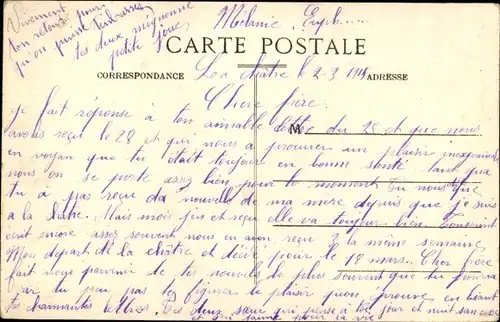 Vivement
ton retour pour
qu'on puisse t'embrasser
tes deux mignonne
petite joue
Mélanie Euph
CARTE POSTALE
CORRESPONDANCE
La Châtre le 2-3 1915
ADRESSE
Chere frère
M
je fait réponse à ton aimable lettre du 25 et que nous
avons reçu le 28 et qui nous a procurer un plaisir inexprimable
en voyan que tu était toujour en bonne santé tant que
nous on se porte assez bien pour le moment Tu nous dit que
tu a pas reçu de nouvelle de ma mere depuis que je suis
a la châtre. Mais moi j'en et reçu elle va toujour bien Toussaint
ecrit encore assez souvent nous en avon reçu 2 la même semaine
Mon depart de la châtre et decidé pour le 12 mars. Cher frère
fait nous parvenir de tes nouvelle le plus souvent que tu pourra
car tu peu pas te figurer le plaisir qu'on prouve en lisant
tes charmantes lettres. Tes deux sœur qui pense a toi jour et nuit sans
et qui t'aime pour la vie